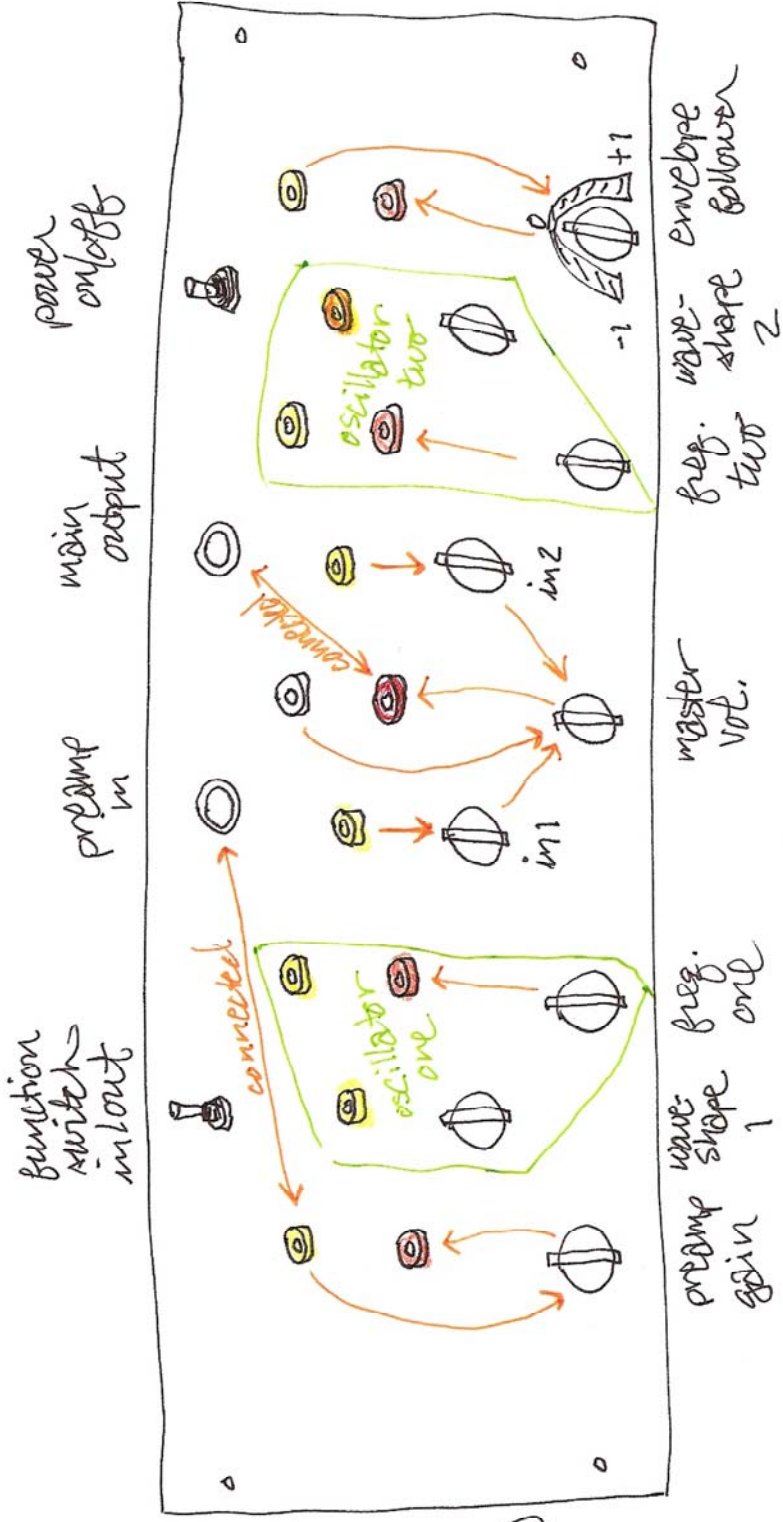 function
switch
in/out
preamp
in
main
output
power
on/off
connected
connected
oscillator
one
oscillator
two
in1
in2
-1
0
+1
preamp
gain
wave-
shape
1
freq.
one
master
vol.
freq.
two
wave-
shape
2
envelope
follower